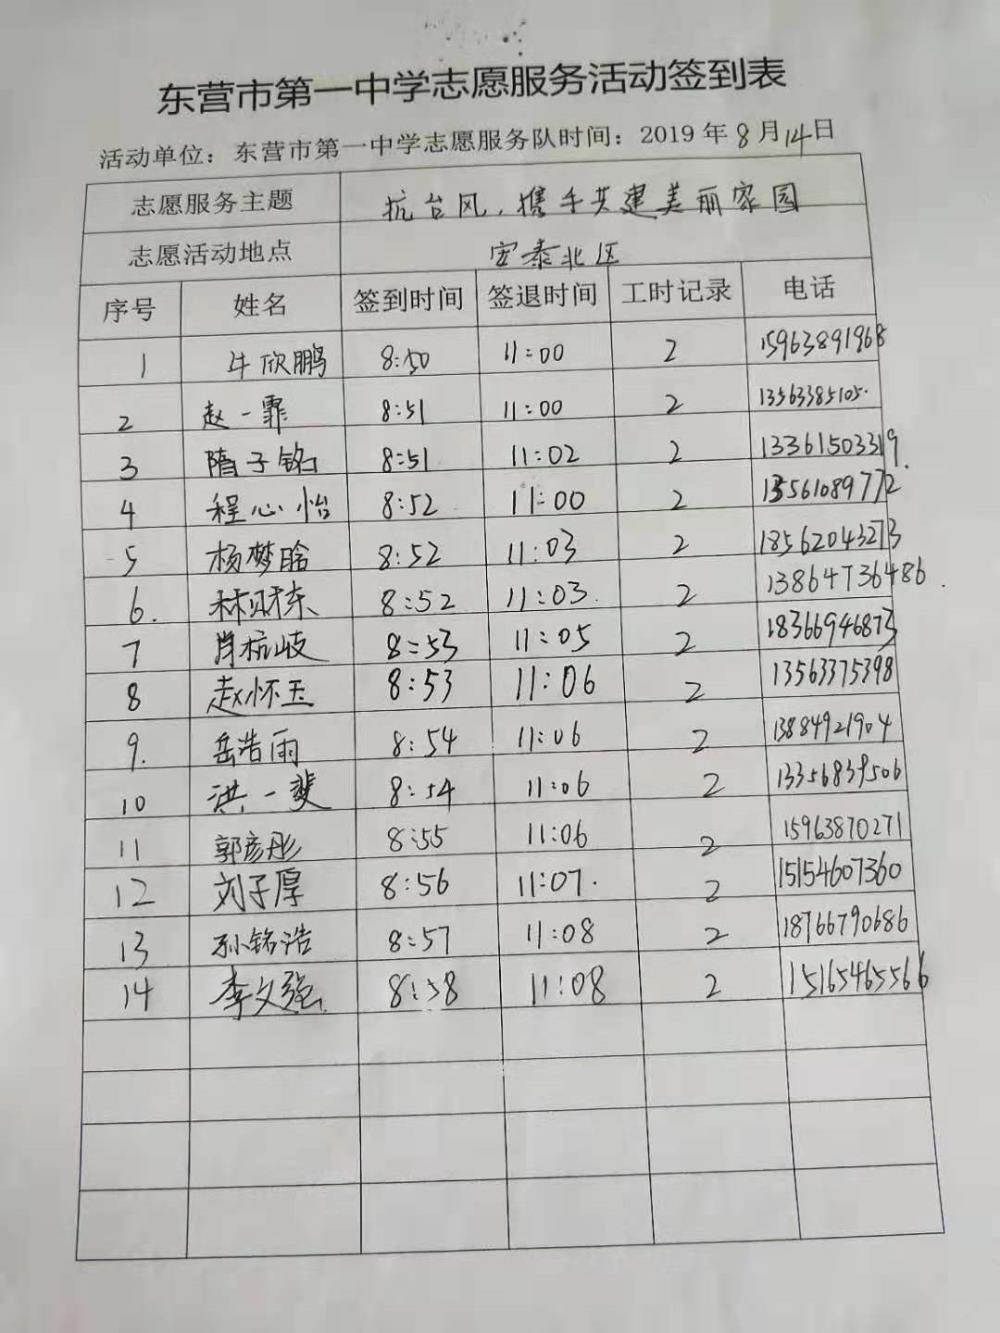 东营市第一中学志愿服务活动签到表
活动单位：东营市第一中学志愿服务队时间：2019年8月14日
志愿服务主题 抗台风，携手共建美丽家园
志愿活动地点 安泰北区
序号 姓名 签到时间 签退时间 工时记录 电话
1 牛欣鹏 8:50 11:00 2 15963891968
2 赵一霏 8:51 11:00 2 13563385105.
3 隋子铭 8:51 11:02 2 13361503319.
4 程心怡 8:52 11:00 2 13561089772
5 杨梦晗 8:52 11:03 2 18562043273
6. 林财东 8:52 11:03. 2 13864736486.
7 肖杭岐 8:53 11:05 2 18366946873
8 赵怀玉 8:53 11:06 2 13563375398
9. 岳浩雨 8:54 11:06 2 13884921904
10 洪一斐 8:54 11:06 2 13356839506
11 郭彦彤 8:55 11:06 2 15963870271
12 刘子厚 8:56 11:07. 2 15154607360
13 孙铭浩 8:57 11:08 2 18766790686
14 李文强 8:58 11:08 2 15165465566